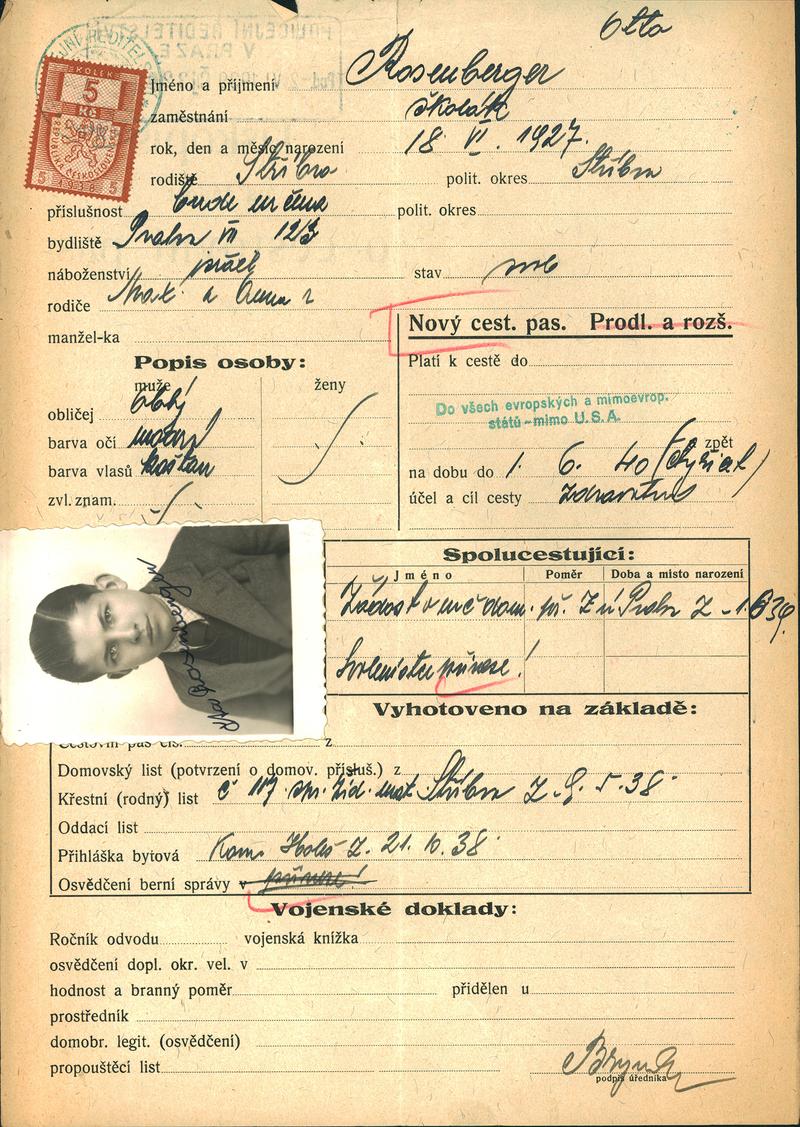 Otto
POLICEJNÍ ŘEDITELSTVÍ
V PRAZE
KOLEK
5
Kč
REPUBLIKA ČESKOSLOVENSKÁ
5 1938 5
Jméno a příjmení Rosenberger
zaměstnání školák
rok, den a měsíc narození 18. VI. 1927.
rodiště Stříbro polit. okres Stříbro
příslušnost bude určena polit. okres
bydliště Praha VII 12/3
náboženství israel stav svob
rodiče Max a Anna
manžel-ka
Nový cest. pas. Prodl. a rozš.
Popis osoby:
muže ženy
Platí k cestě do
obličej oblý
Do všech evropských a mimoevrop.
států - mimo U.S.A.
barva očí modrý
zpět
barva vlasů kaštan
na dobu do 1. 6. 40
zvl. znam.
účel a cíl cesty
Spolucestující:
Jméno Poměr Doba a místo narození
Žádost o urč. dom. př. Z ú Praha Z - 1. 6 39.
přinese!
Rosenberger
Vyhotoveno na základě:
Cestovní pas čís. z
Domovský list (potvrzení o domov. přísluš.) z
Křestní (rodný) list č 117 žid. mat. Stříbro Z. 9. 5. 38
Oddací list
Přihláška bytová Kom. Holeš Z. 21. 10. 38
Osvědčení berní správy v přinese!
Vojenské doklady:
Ročník odvodu vojenská knížka
osvědčení dopl. okr. vel. v
hodnost a branný poměr přidělen u
prostředník
domobr. legit. (osvědčení)
propouštěcí list
podpis úředníka